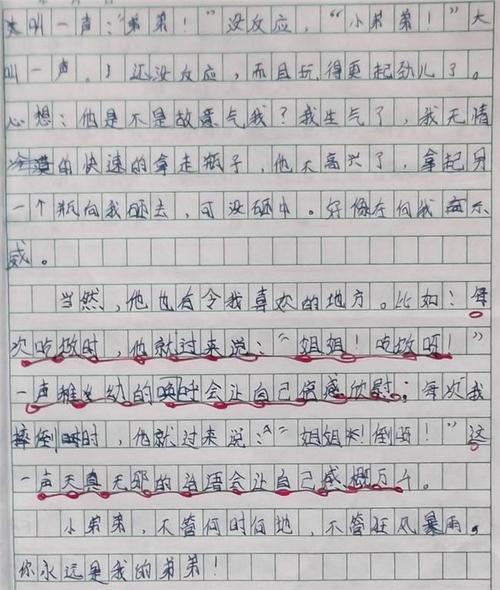 叫一声："弟弟！"没反应，"小弟弟！"大
叫一声。！还没反应，而且玩得更起劲儿了。
心想：他是不是故意气我？我生气了，我无情
的快速的拿走瓶子，他不高兴了，拿起另
一个瓶向我砸去，可没砸中。好像在向我示
威。
当然，他也有令我喜欢的地方。比如：每
次吃饭时，他就过来说："姐姐！吃饭呀！"
一声稚幼的唤时会让自己倍感欣慰；每次我
摔倒时，他就过来说："姐姐！倒要！"这
一声天真无邪的话语会让自己感概万千。
小弟弟，不管何时何地，不管狂风暴雨，
你永远是我的弟弟！